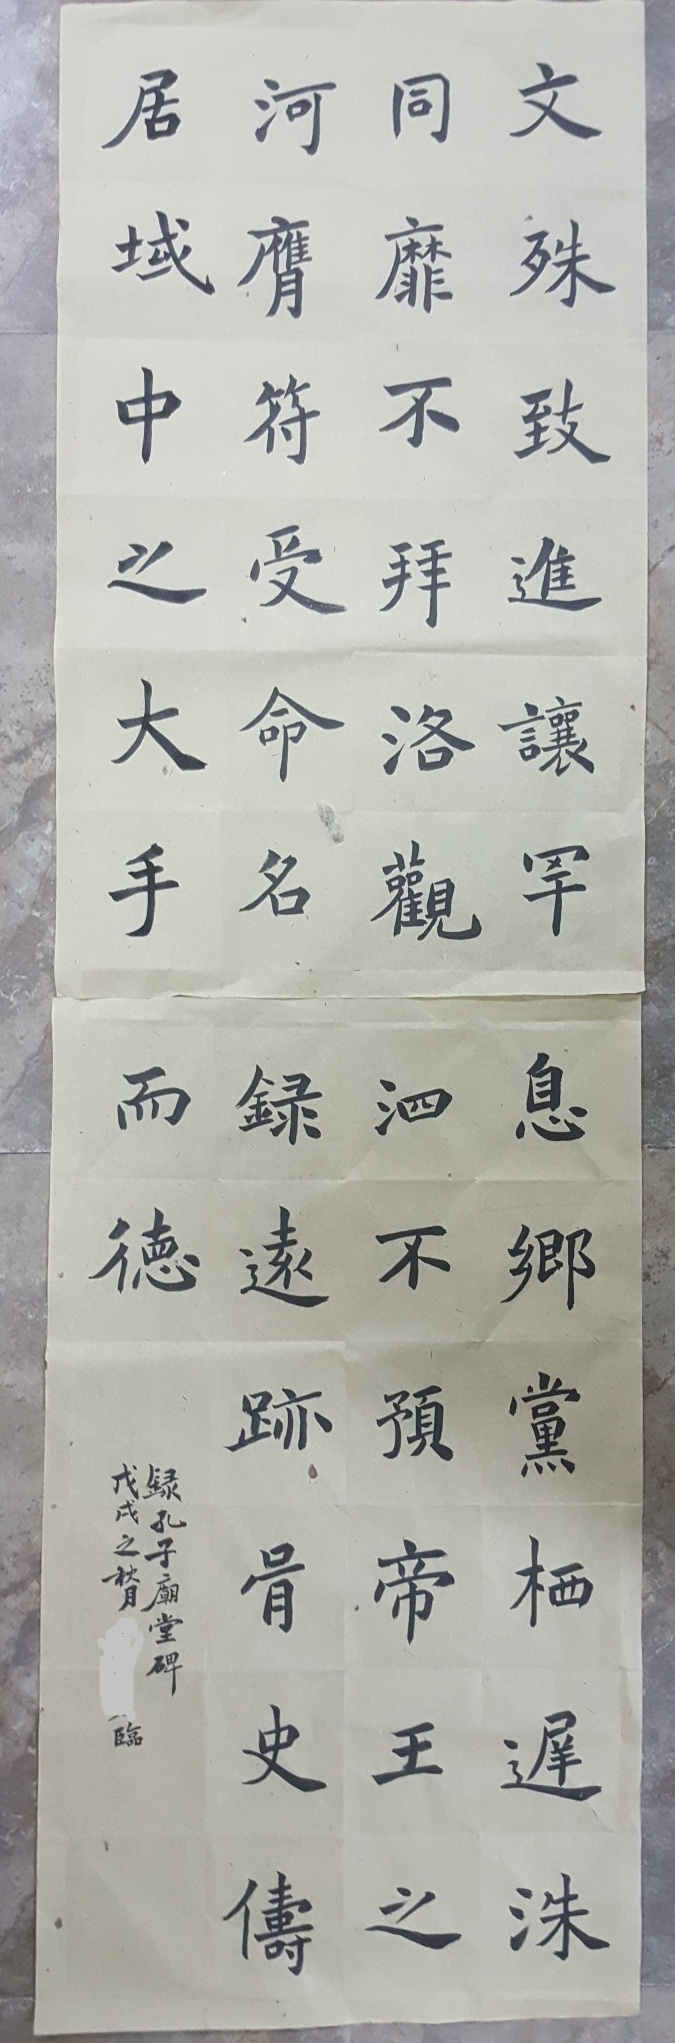 文殊致進讓罕息鄉黨栖遲洙
同靡不拜洛觀泗不預帝王之
河膺符受命名録遠跡胥史儔
居域中之大手而德
録孔子廟堂碑
戊戌之秋月 臨